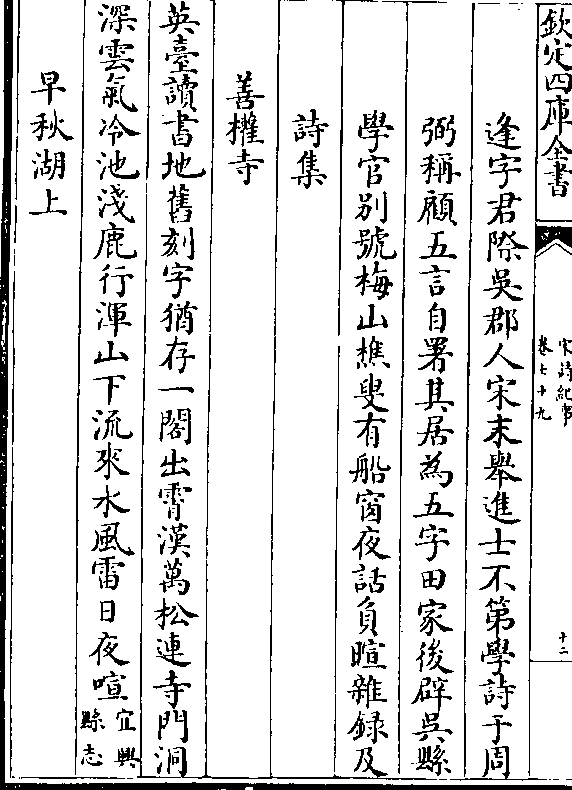 欽定四庫全書
宋詩紀事
卷七十九
十二
逢字君際吳郡人宋末舉進士不第學詩于周
弼稱顧五言自署其居為五字田家後辟吳縣
學官别號梅山樵叟有船窗夜話負暄雜録及
詩集
善權寺
英臺讀書地舊刻字猶存一閣出霄漢萬松連寺門洞
深雲氣冷池淺鹿行渾山下流來水風雷日夜喧宜興
縣志
早秋湖上